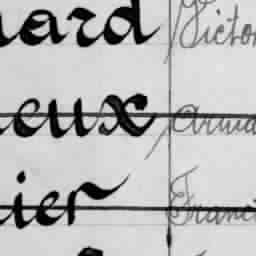 nard Victor
eux Arma
ier Franci